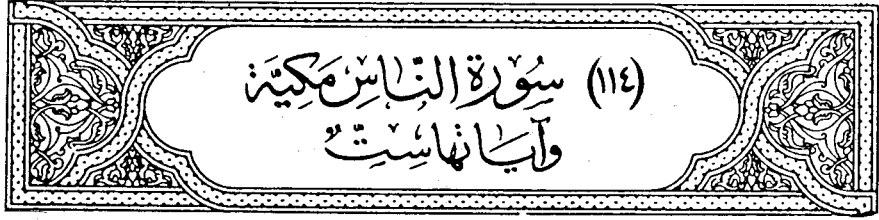 (١١٤) سُوْرَةُ النَّاسِ مَكِيَّة
وَآيَاتُهَا سِتٌّ